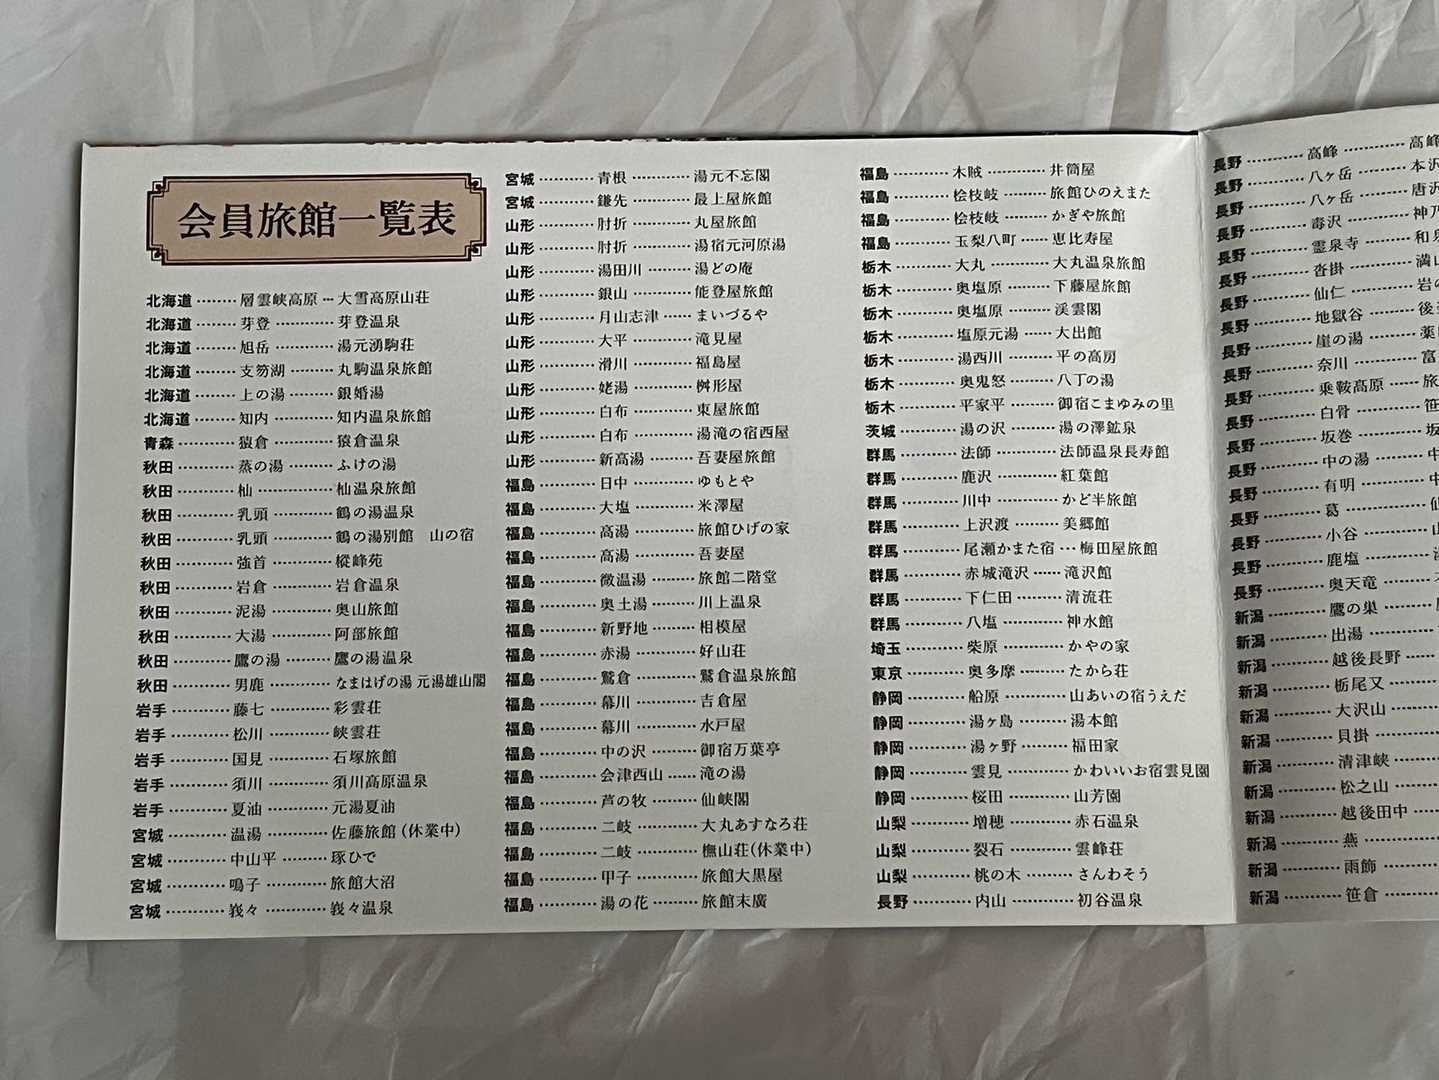 会員旅館一覧表
北海道………層雲峡高原…大雪高原山荘
北海道………芽登…………芽登温泉
北海道………旭岳…………湯元湧駒荘
北海道………支笏湖………丸駒温泉旅館
北海道………上の湯………銀婚湯
北海道………知内…………知内温泉旅館
青森…………猿倉…………猿倉温泉
秋田…………蒸の湯………ふけの湯
秋田…………杣……………杣温泉旅館
秋田…………乳頭…………鶴の湯温泉
秋田…………乳頭…………鶴の湯別館 山の宿
秋田…………強首…………樅峰苑
秋田…………岩倉…………岩倉温泉
秋田…………泥湯…………奥山旅館
秋田…………大湯…………阿部旅館
秋田…………鷹の湯………鷹の湯温泉
秋田…………男鹿…………なまはげの湯 元湯雄山閣
岩手…………藤七…………彩雲荘
岩手…………松川…………峡雲荘
岩手…………国見…………石塚旅館
岩手…………須川…………須川高原温泉
岩手…………夏油…………元湯夏油
宮城…………温湯…………佐藤旅館(休業中)
宮城…………中山平………琢ひで
宮城…………鳴子…………旅館大沼
宮城…………峩々…………峩々温泉
宮城…………青根…………湯元不忘閣
宮城…………鎌先…………最上屋旅館
山形…………肘折…………丸屋旅館
山形…………肘折…………湯宿元河原湯
山形…………湯田川………湯どの庵
山形…………銀山…………能登屋旅館
山形…………月山志津……まいづるや
山形…………大平…………滝見屋
山形…………滑川…………福島屋
山形…………姥湯…………桝形屋
山形…………白布…………東屋旅館
山形…………白布…………湯滝の宿西屋
山形…………新高湯………吾妻屋旅館
福島…………日中…………ゆもとや
福島…………大塩…………米澤屋
福島…………高湯…………旅館ひげの家
福島…………高湯…………吾妻屋
福島…………微温湯………旅館二階堂
福島…………奥土湯………川上温泉
福島…………新野地………相模屋
福島…………赤湯…………好山荘
福島…………鷲倉…………鷲倉温泉旅館
福島…………幕川…………吉倉屋
福島…………幕川…………水戸屋
福島…………中の沢………御宿万葉亭
福島…………会津西山……滝の湯
福島…………芦の牧………仙峡閣
福島…………二岐…………大丸あすなろ荘
福島…………二岐…………橅山荘(休業中)
福島…………甲子…………旅館大黒屋
福島…………湯の花………旅館末廣
福島…………木賊…………井筒屋
福島…………桧枝岐………旅館ひのえまた
福島…………桧枝岐………かぎや旅館
福島…………玉梨八町……恵比寿屋
栃木…………大丸…………大丸温泉旅館
栃木…………奥塩原………下藤屋旅館
栃木…………奥塩原………渓雲閣
栃木…………塩原元湯……大出館
栃木…………湯西川………平の高房
栃木…………奥鬼怒………八丁の湯
栃木…………平家平………御宿こまゆみの里
茨城…………湯の沢………湯の澤鉱泉
群馬…………法師…………法師温泉長寿館
群馬…………鹿沢…………紅葉館
群馬…………川中…………かど半旅館
群馬…………上沢渡………美郷館
群馬…………尾瀬かまた宿…梅田屋旅館
群馬…………赤城滝沢……滝沢館
群馬…………下仁田………清流荘
群馬…………八塩…………神水館
埼玉…………柴原…………かやの家
東京…………奥多摩………たから荘
静岡…………船原…………山あいの宿うえだ
静岡…………湯ヶ島………湯本館
静岡…………湯ヶ野………福田家
静岡…………雲見…………かわいいお宿雲見園
静岡…………桜田…………山芳園
山梨…………増穂…………赤石温泉
山梨…………裂石…………雲峰荘
山梨…………桃の木………さんわそう
長野…………内山…………初谷温泉
長野…………高峰…………高峰
長野…………八ヶ岳………本沢
長野…………八ヶ岳………唐沢
長野…………毒沢…………神乃
長野…………霊泉寺………和泉
長野…………沓掛…………満山
長野…………仙仁…………岩の
長野…………地獄谷………後
長野…………崖の湯………薬
長野…………奈川…………富
長野…………乗鞍高原……旅
長野…………白骨…………笹
長野…………坂巻…………坂
長野…………中の湯………中
長野…………有明…………中
長野…………葛……………仙
長野…………小谷…………山
長野…………鹿塩…………
長野…………奥天竜………
新潟…………鷹の巣………
新潟…………出湯…………
新潟…………越後長野……
新潟…………栃尾又………
新潟…………大沢山………
新潟…………貝掛…………
新潟…………清津峡………
新潟…………松之山………
新潟…………越後田中……
新潟…………燕……………
新潟…………雨飾…………
新潟…………笹倉…………